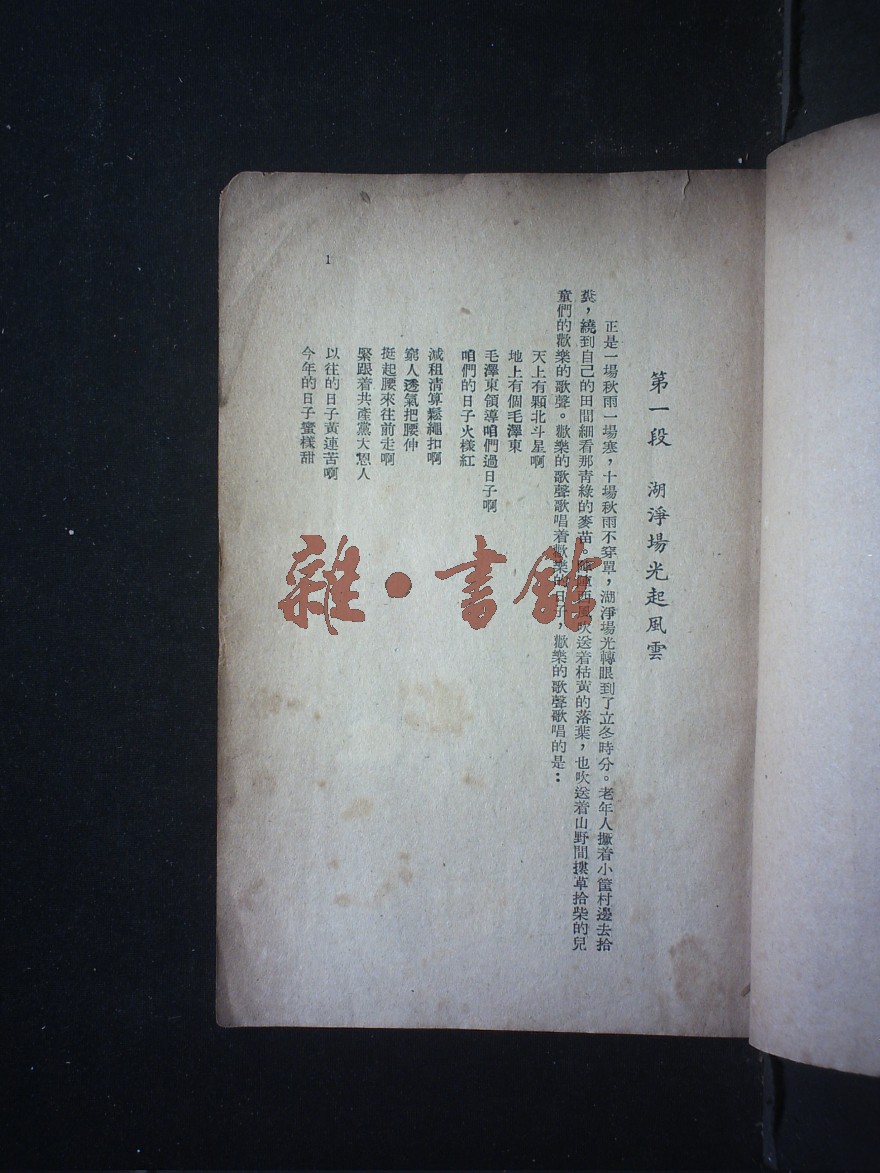 第一段　湖淨場光起風雲
正是一場秋雨一場寒，十場秋雨不穿單，湖淨場光轉眼到了立冬時分。老年人攦着小筐村邊去拾
糞，繞到自己的田間細看那青綠的麥苗，陣陣西風吹送着枯黃的落葉，也吹送着山野間摟草拾柴的兒
童們的歡樂的歌聲。歡樂的歌聲歌唱着歡樂的日子，歡樂的歌聲歌唱的是：
天上有顆北斗星啊
地上有個毛澤東
毛澤東領導咱們過日子啊
咱們的日子火樣紅
減租清算鬆繩扣啊
窮人透氣把腰伸
挺起腰來往前走啊
緊跟着共產黨大恩人
以往的日子黃連苦啊
今年的日子蜜樣甜
1
雜·書館